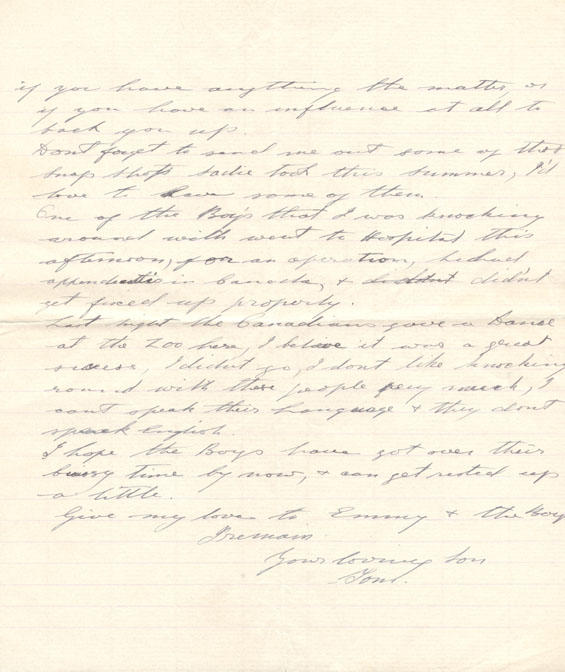 if you have anything the matter, or
if you have an influence at all to
back you up.
Dont forget to send me out some of those
snap shots Sadie took this summer, I'd
love to have some of them.
One of the Boys that I was knocking
around with went to Hospital this
afternoon, for an operation, he had
appendicitis in Canada, & didn't
get fixed up properly.
Last night the Canadians gave a Dance
at the Zoo here, I believe it was a great
sucess, I didnt go, I dont like knocking
round with these people very much, I
cant speak their Language & they dont
speak English.
I hope the Boys have got over their
busy time by now, & can get rested up
a little.
Give my love to Emmy & the Boys
I remain.
Your loving son
Tom.